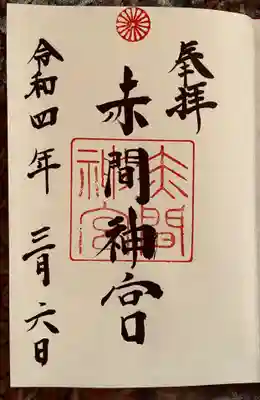 奉拝
赤間神宮
赤間神宮
令和四年 三月六日